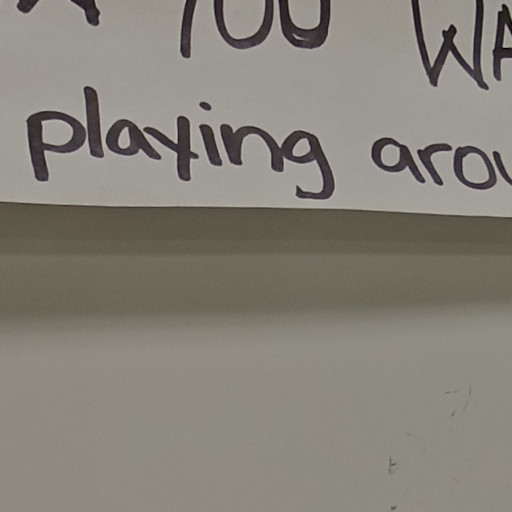 YOU WA
playing arou